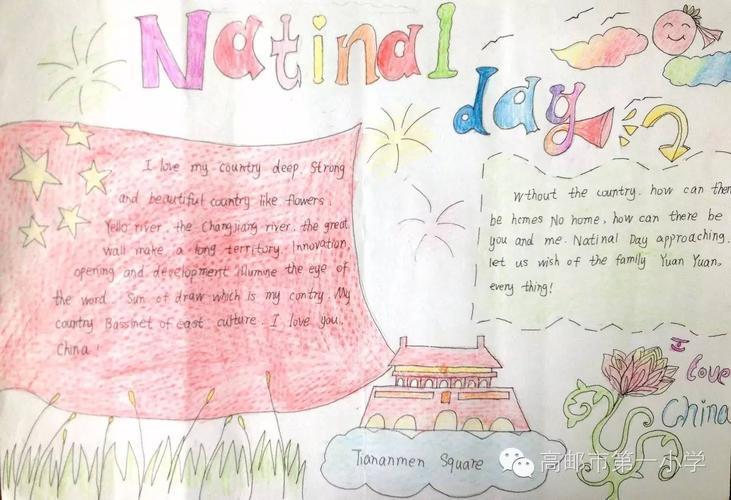 Natinal
day
I love my country deep. Strong
and beautiful country like flowers.
Yello river, the Changjiang river, the great
wall make a long territory. Innovation,
opening and development illumne the eye of
the word. Sun of draw which is my contry. My
country Bassinet of east culture. I love you.
China!
Wthout the country. how can then
be homes No home, how can there be
you and me. Natinal Day approaching.
let us wish of the family Yuan Yuan,
every thing!
I
love
China
Tiananmen Square
高邮市第一小学